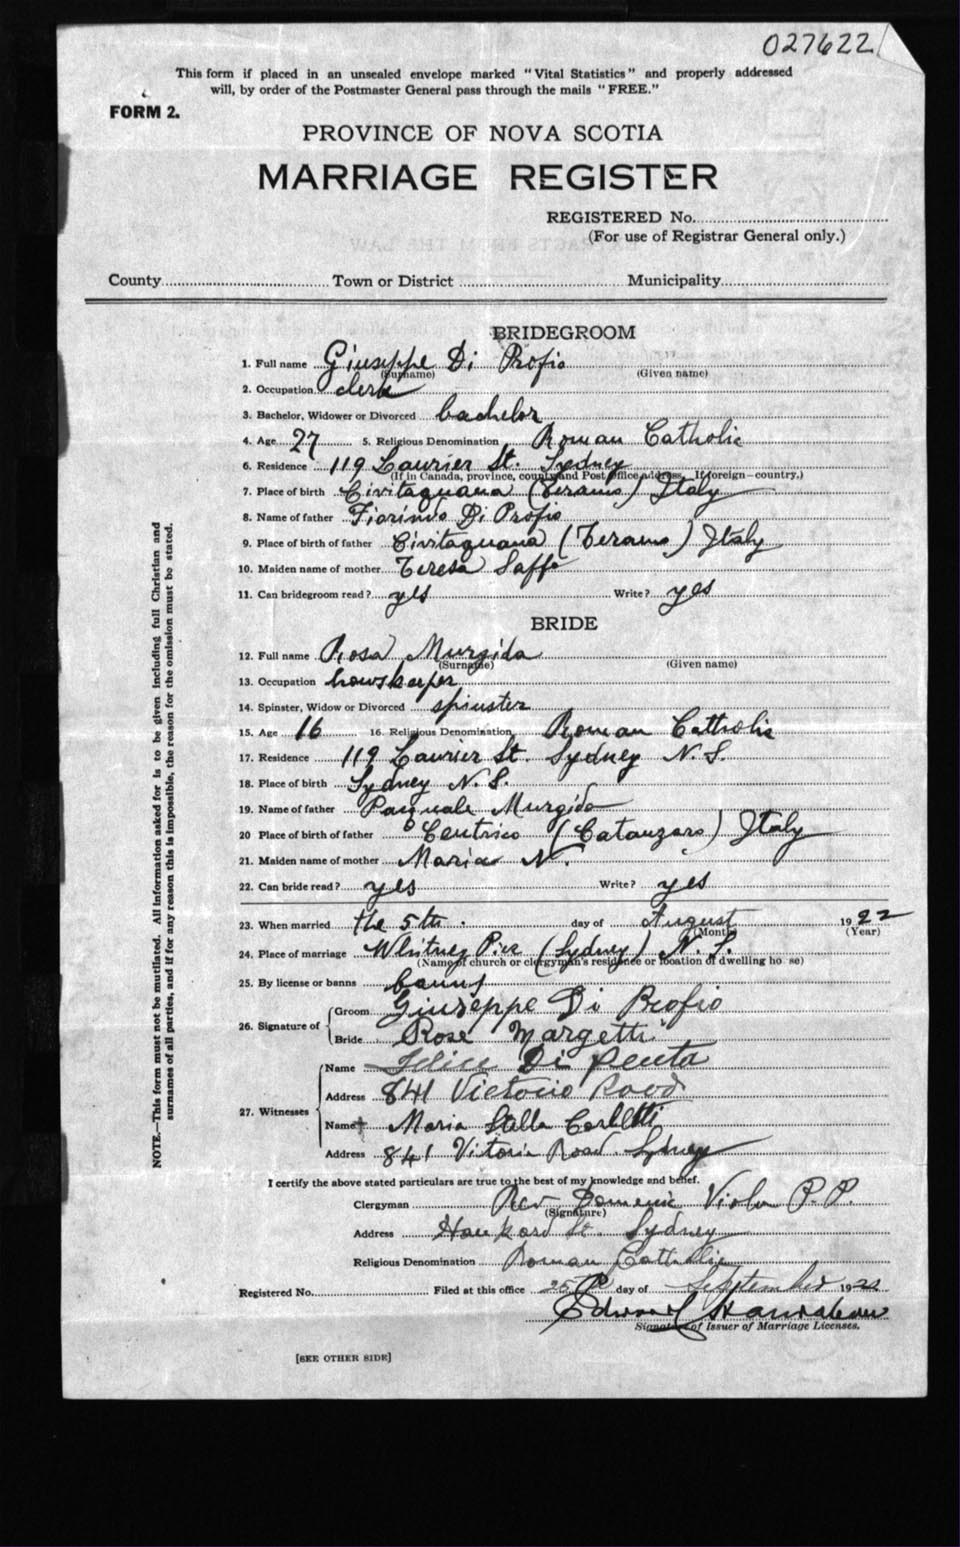 027622
This form if placed in an unsealed envelope marked "Vital Statistics" and properly addressed
will, by order of the Postmaster General pass through the mails "FREE."
FORM 2.
PROVINCE OF NOVA SCOTIA
MARRIAGE REGISTER
REGISTERED No.
(For use of Registrar General only.)
County Town or District Municipality
BRIDEGROOM
1. Full name Giuseppe Di Profio
(Surname) (Given name)
2. Occupation clerk
3. Bachelor, Widower or Divorced bachelor
4. Age 27 5. Religious Denomination Roman Catholic
6. Residence 119 Laurier St. Sydney
(If in Canada, province, county and Post Office address. If foreign—country.)
7. Place of birth Civitaquana (Teramo) Italy
8. Name of father Fiorindo Di Profio
9. Place of birth of father Civitaquana (Teramo) Italy
10. Maiden name of mother Teresa
11. Can bridegroom read? yes Write? yes
BRIDE
12. Full name Rosa Murgida
(Surname) (Given name)
13. Occupation howskeeper
14. Spinster, Widow or Divorced spinster
15. Age 16 16. Religious Denomination Roman Cattholic
17. Residence 119 Laurier St. Sydney N. S.
18. Place of birth Sydney N. S.
19. Name of father Pasquale Murgida
20 Place of birth of father (Catanzaro) Italy
21. Maiden name of mother Maria N.
22. Can bride read? yes Write? yes
23. When married the 5th. day of August 1922
(Month) (Year)
24. Place of marriage Whitney Pier (Sydney) N. S.
(Name of church or clergyman's residence or location of dwelling house)
25. By license or banns banns
26. Signature of
Groom Giuseppe Di Profio
Bride Rose Margetti
27. Witnesses
Name Felice Di Penta
Address 841 Victoria Road
Name Maria Stella
Address 841 Victoria Road Sydney
I certify the above stated particulars are true to the best of my knowledge and belief.
Clergyman Rev Domenic Viola P. P.
(Signature)
Address St. Sydney
Religious Denomination Roman Cattholic
Registered No. Filed at this office 25 day of September 1922
Edward
Signature of Issuer of Marriage Licenses.
[SEE OTHER SIDE]
NOTE.—This form must not be mutilated. All information asked for is to be given including full Christian and
surnames of all parties, and if for any reason this is impossible, the reason for the omission must be stated.